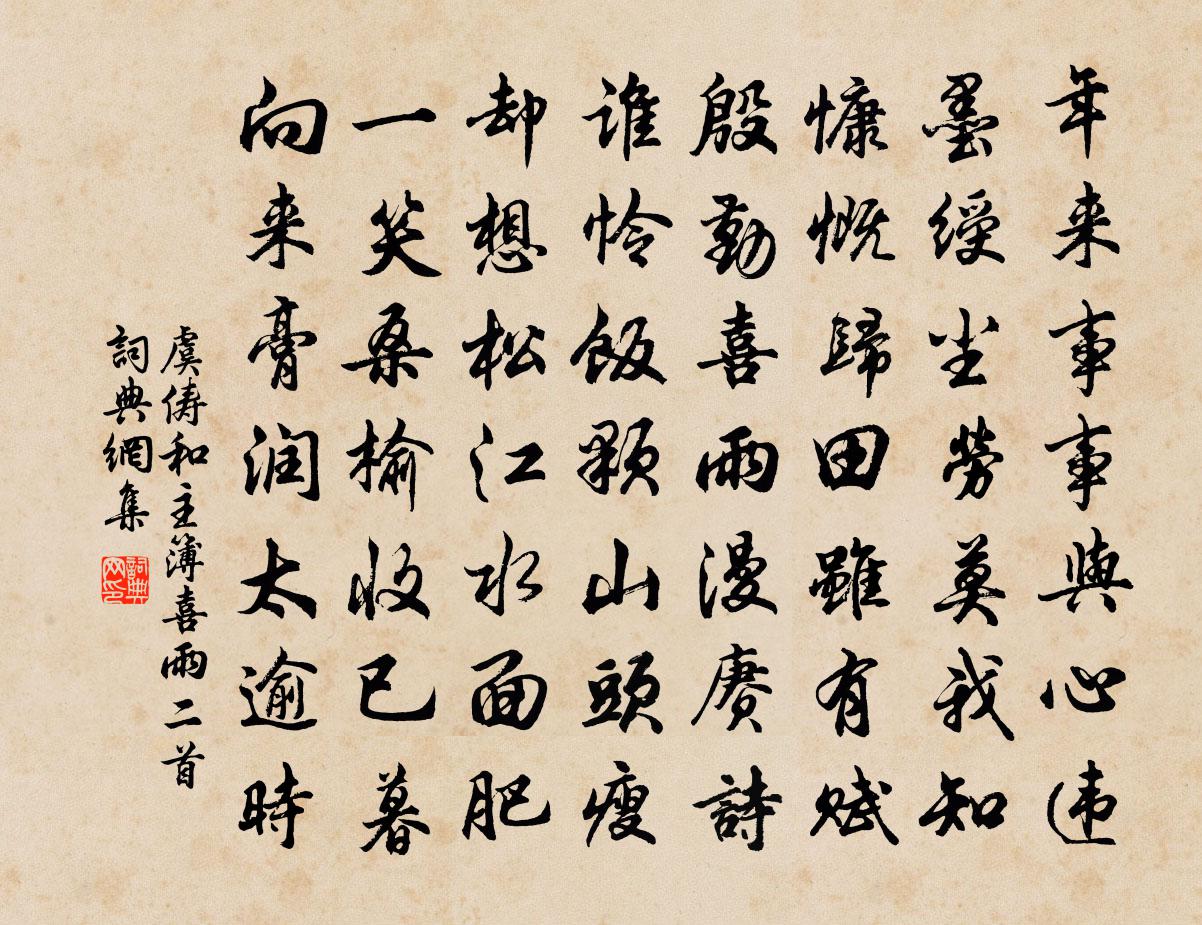 年来事事與心违
墨綬尘劳莫我知
慷慨歸田雖有赋
殷勤喜雨漫赓詩
谁怜飯顆山頭瘦
却想松江水面肥
一笑桑榆收已暮
向来膏润太逾時
虞俦和主簿喜雨二首
詞典網集
詞典网印